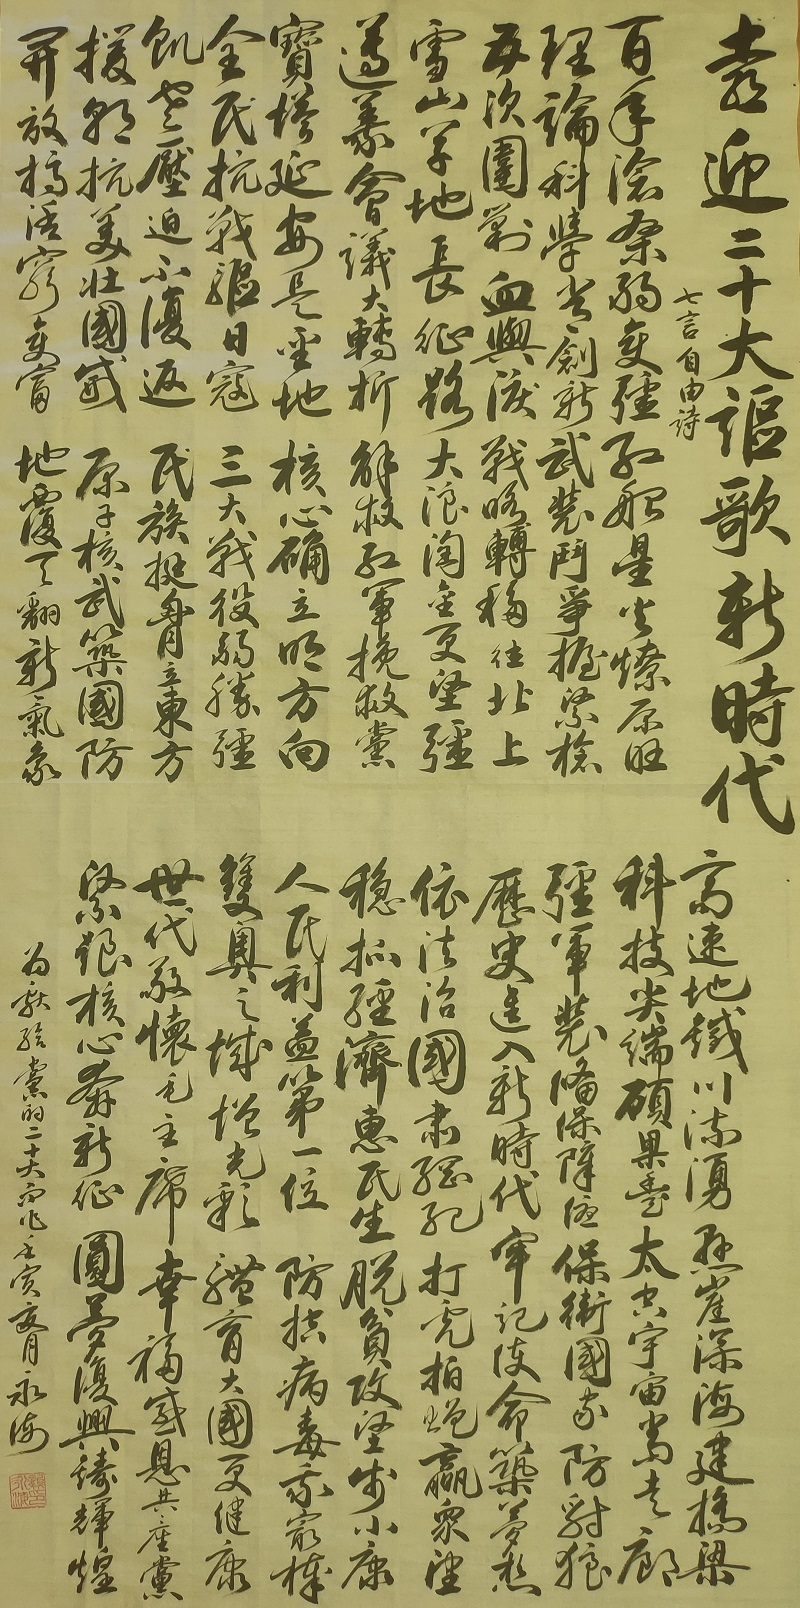 喜迎二十大謳歌新時代
七言自由詩
百年滄桑弱变疆 紅船星火燎原旺
理論科學尝創新 武裝鬥爭握緊槍
五次圍剿血與淚 戰略轉移往北上
雪山草地長征路 大浪淘金更堅疆
遵義會議大轉折 解救紅軍挽救黨
寶塔延安是聖地 核心确立明方向
全民抗戰驅日寇 三大戰役弱勝疆
飢寒壓迫不復返 民族挺胸立東方
援朝抗美壯國威 原子核武築國防
開放搞活窮变富 地覆天翻新氣象
高速地鐵川流湧 懸崖深海建橋梁
科技尖端碩果壘 太空宇宙當走廊
疆軍裝俻保障通 保衛國家防豺狼
歷史進入新時代 牢記使命築夢想
依法治國肅綱紀 打虎拍蠅贏眾望
穩抓經濟惠民生 脫貧攻堅步小康
人民利益第一位 防控病毒我最棒
雙奧之城增光彩 體育大國更健康
世代敬懷毛主席 幸福感恩共產黨
緊跟核心奔新征 圓夢復興鑄輝煌
为献给黨的二十大而作壬寅夏月永海